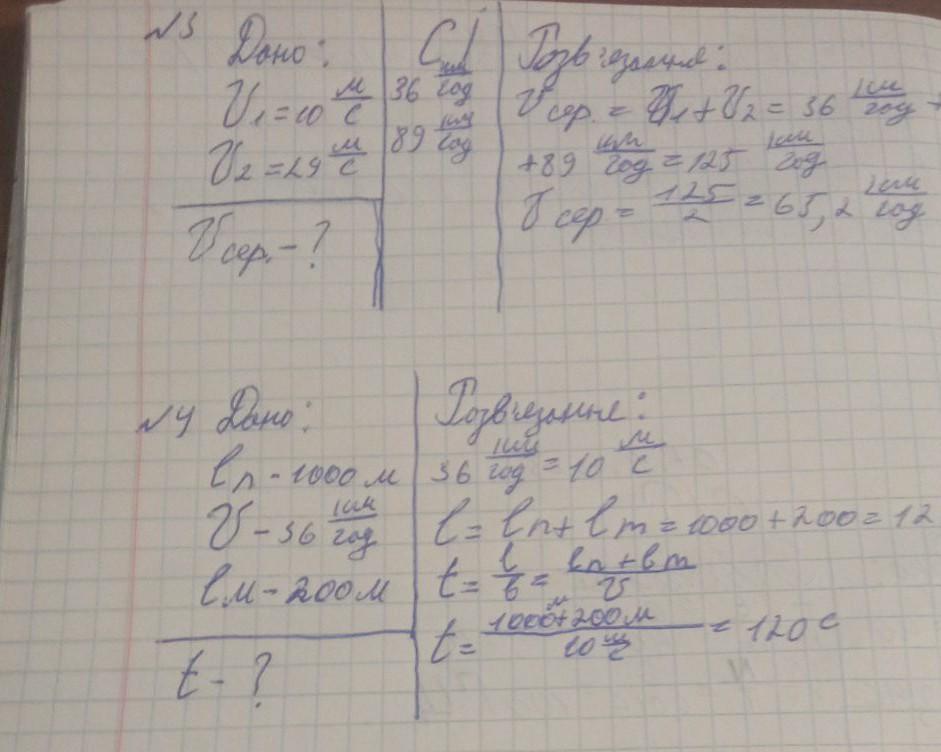 №3 Дано:
V₁ = 10 м/с
V₂ = 29 м/с
Vсер. - ?
СІ
36 км/год
89 км/год
Розв'язання:
Vсер. = V₁ + V₂ = 36 км/год +
+ 89 км/год = 125 км/год
Vсер = 125/2 = 65,2 км/год
№4 Дано:
lп - 1000 м
V - 36 км/год
lм - 200 м
t - ?
Розв'язання:
36 км/год = 10 м/с
l = lп + lm = 1000 + 200 = 12
t = l/v = (lп + lm)/V
t = (1000м + 200м)/(10 м/с) = 120 с